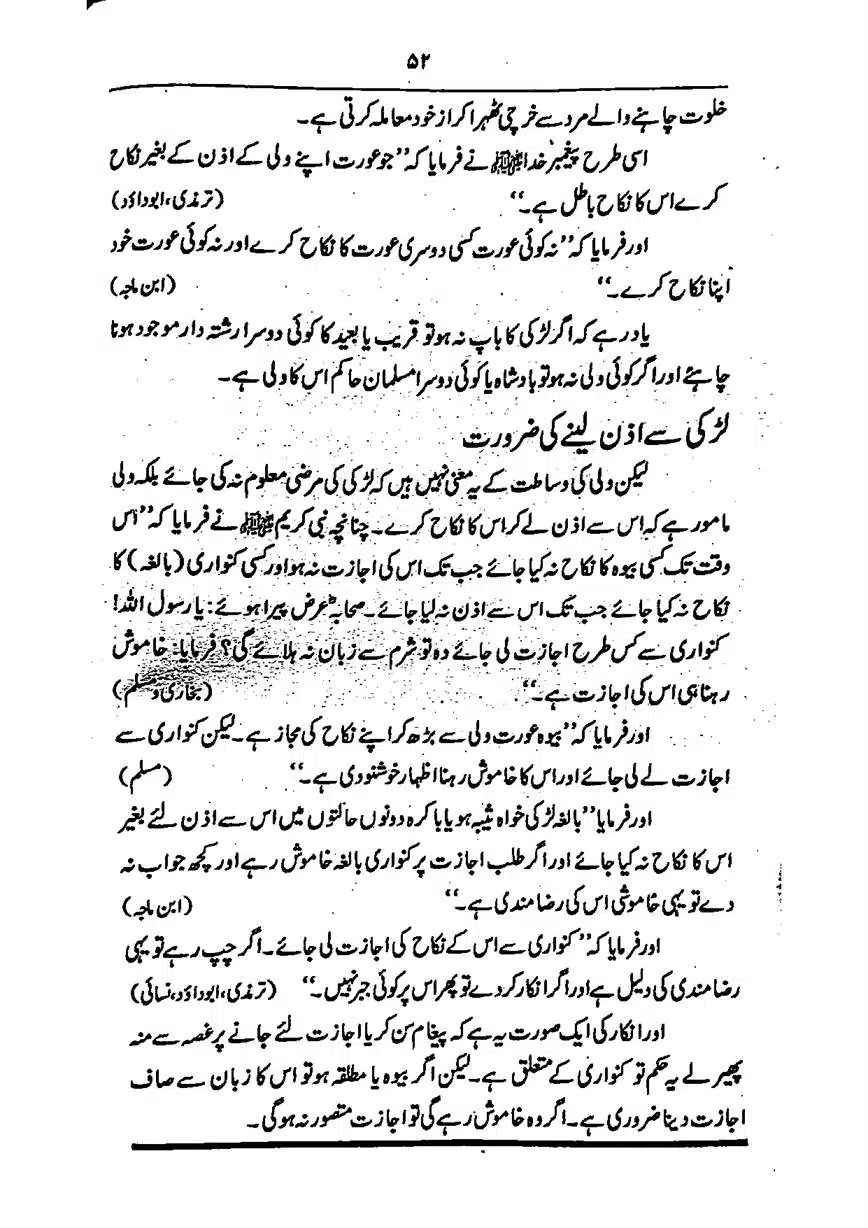 ۵۲
خلوت چاہنے والے مرد سے خرچی ٹھہرا کر از خود معاملہ کرتی ہے۔
اسی طرح پیغمبر خداﷺ نے فرمایا کہ ’’جو عورت اپنے ولی کے اذن کے بغیر نکاح
کرے اس کا نکاح باطل ہے۔‘‘ (ترمذی، ابوداؤد)
اور فرمایا کہ ’’نہ کوئی عورت کسی دوسری عورت کا نکاح کرے اور نہ کوئی عورت خود
اپنا نکاح کرے۔‘‘ (ابن ماجہ)
یاد رہے کہ اگر لڑکی کا باپ نہ ہو تو قریب یا بعید کا کوئی دوسرا رشتہ دار موجود ہونا
چاہئے اور اگر کوئی ولی نہ ہو تو بادشاہ یا کوئی دوسرا مسلمان حاکم اس کا ولی ہے۔
لڑکی سے اذن لینے کی ضرورت
لیکن ولی کی وساطت کے یہ معنی نہیں ہیں کہ لڑکی کی مرضی معلوم نہ کی جائے بلکہ ولی
مامور ہے کہ اس سے اذن لے کر اس کا نکاح کرے۔ چنانچہ نبی کریمﷺ نے فرمایا کہ ’’اس
وقت تک کسی بیوہ کا نکاح نہ کیا جائے جب تک اس کی اجازت نہ ہو اور کسی کنواری (بالغہ) کا
نکاح نہ کیا جائے جب تک اس سے اذن نہ لیا جائے۔ صحابہؓ عرض پیرا ہوئے: یا رسول اللہ!
کنواری سے کس طرح اجازت لی جائے وہ تو شرم سے زبان نہ ہلائے گی؟ فرمایا: خاموش
رہنا ہی اس کی اجازت ہے۔‘‘ (بخاری و مسلم)
اور فرمایا کہ ’’بیوہ عورت ولی سے بڑھ کر اپنے نکاح کی مجاز ہے۔ لیکن کنواری سے
اجازت لے لی جائے اور اس کا خاموش رہنا اظہار خوشنودی ہے۔‘‘ (مسلم)
اور فرمایا ’’بالغہ لڑکی خواہ ثیبہ ہو یا باکرہ دونوں حالتوں میں اس سے اذن لئے بغیر
اس کا نکاح نہ کیا جائے اور اگر طلب اجازت پر کنواری بالغہ خاموش رہے اور کچھ جواب نہ
دے تو یہی خاموشی اس کی رضامندی ہے۔‘‘ (ابن ماجہ)
اور فرمایا کہ ’’کنواری سے اس کے نکاح کی اجازت لی جائے۔ اگر چپ رہے تو یہی
رضامندی کی دلیل ہے اور اگر انکار کر دے تو پھر اس پر کوئی جبر نہیں۔‘‘ (ترمذی، ابوداؤد، نسائی)
اور انکار کی ایک صورت یہ ہے کہ پیغام سن کر یا اجازت لئے جانے پر غصہ سے منہ
پھیر لے یہ حکم تو کنواری کے متعلق ہے۔ لیکن اگر بیوہ یا مطلقہ ہو تو اس کا زبان سے صاف
اجازت دینا ضروری ہے۔ اگر وہ خاموش رہے گی تو اجازت متصور نہ ہوگی۔